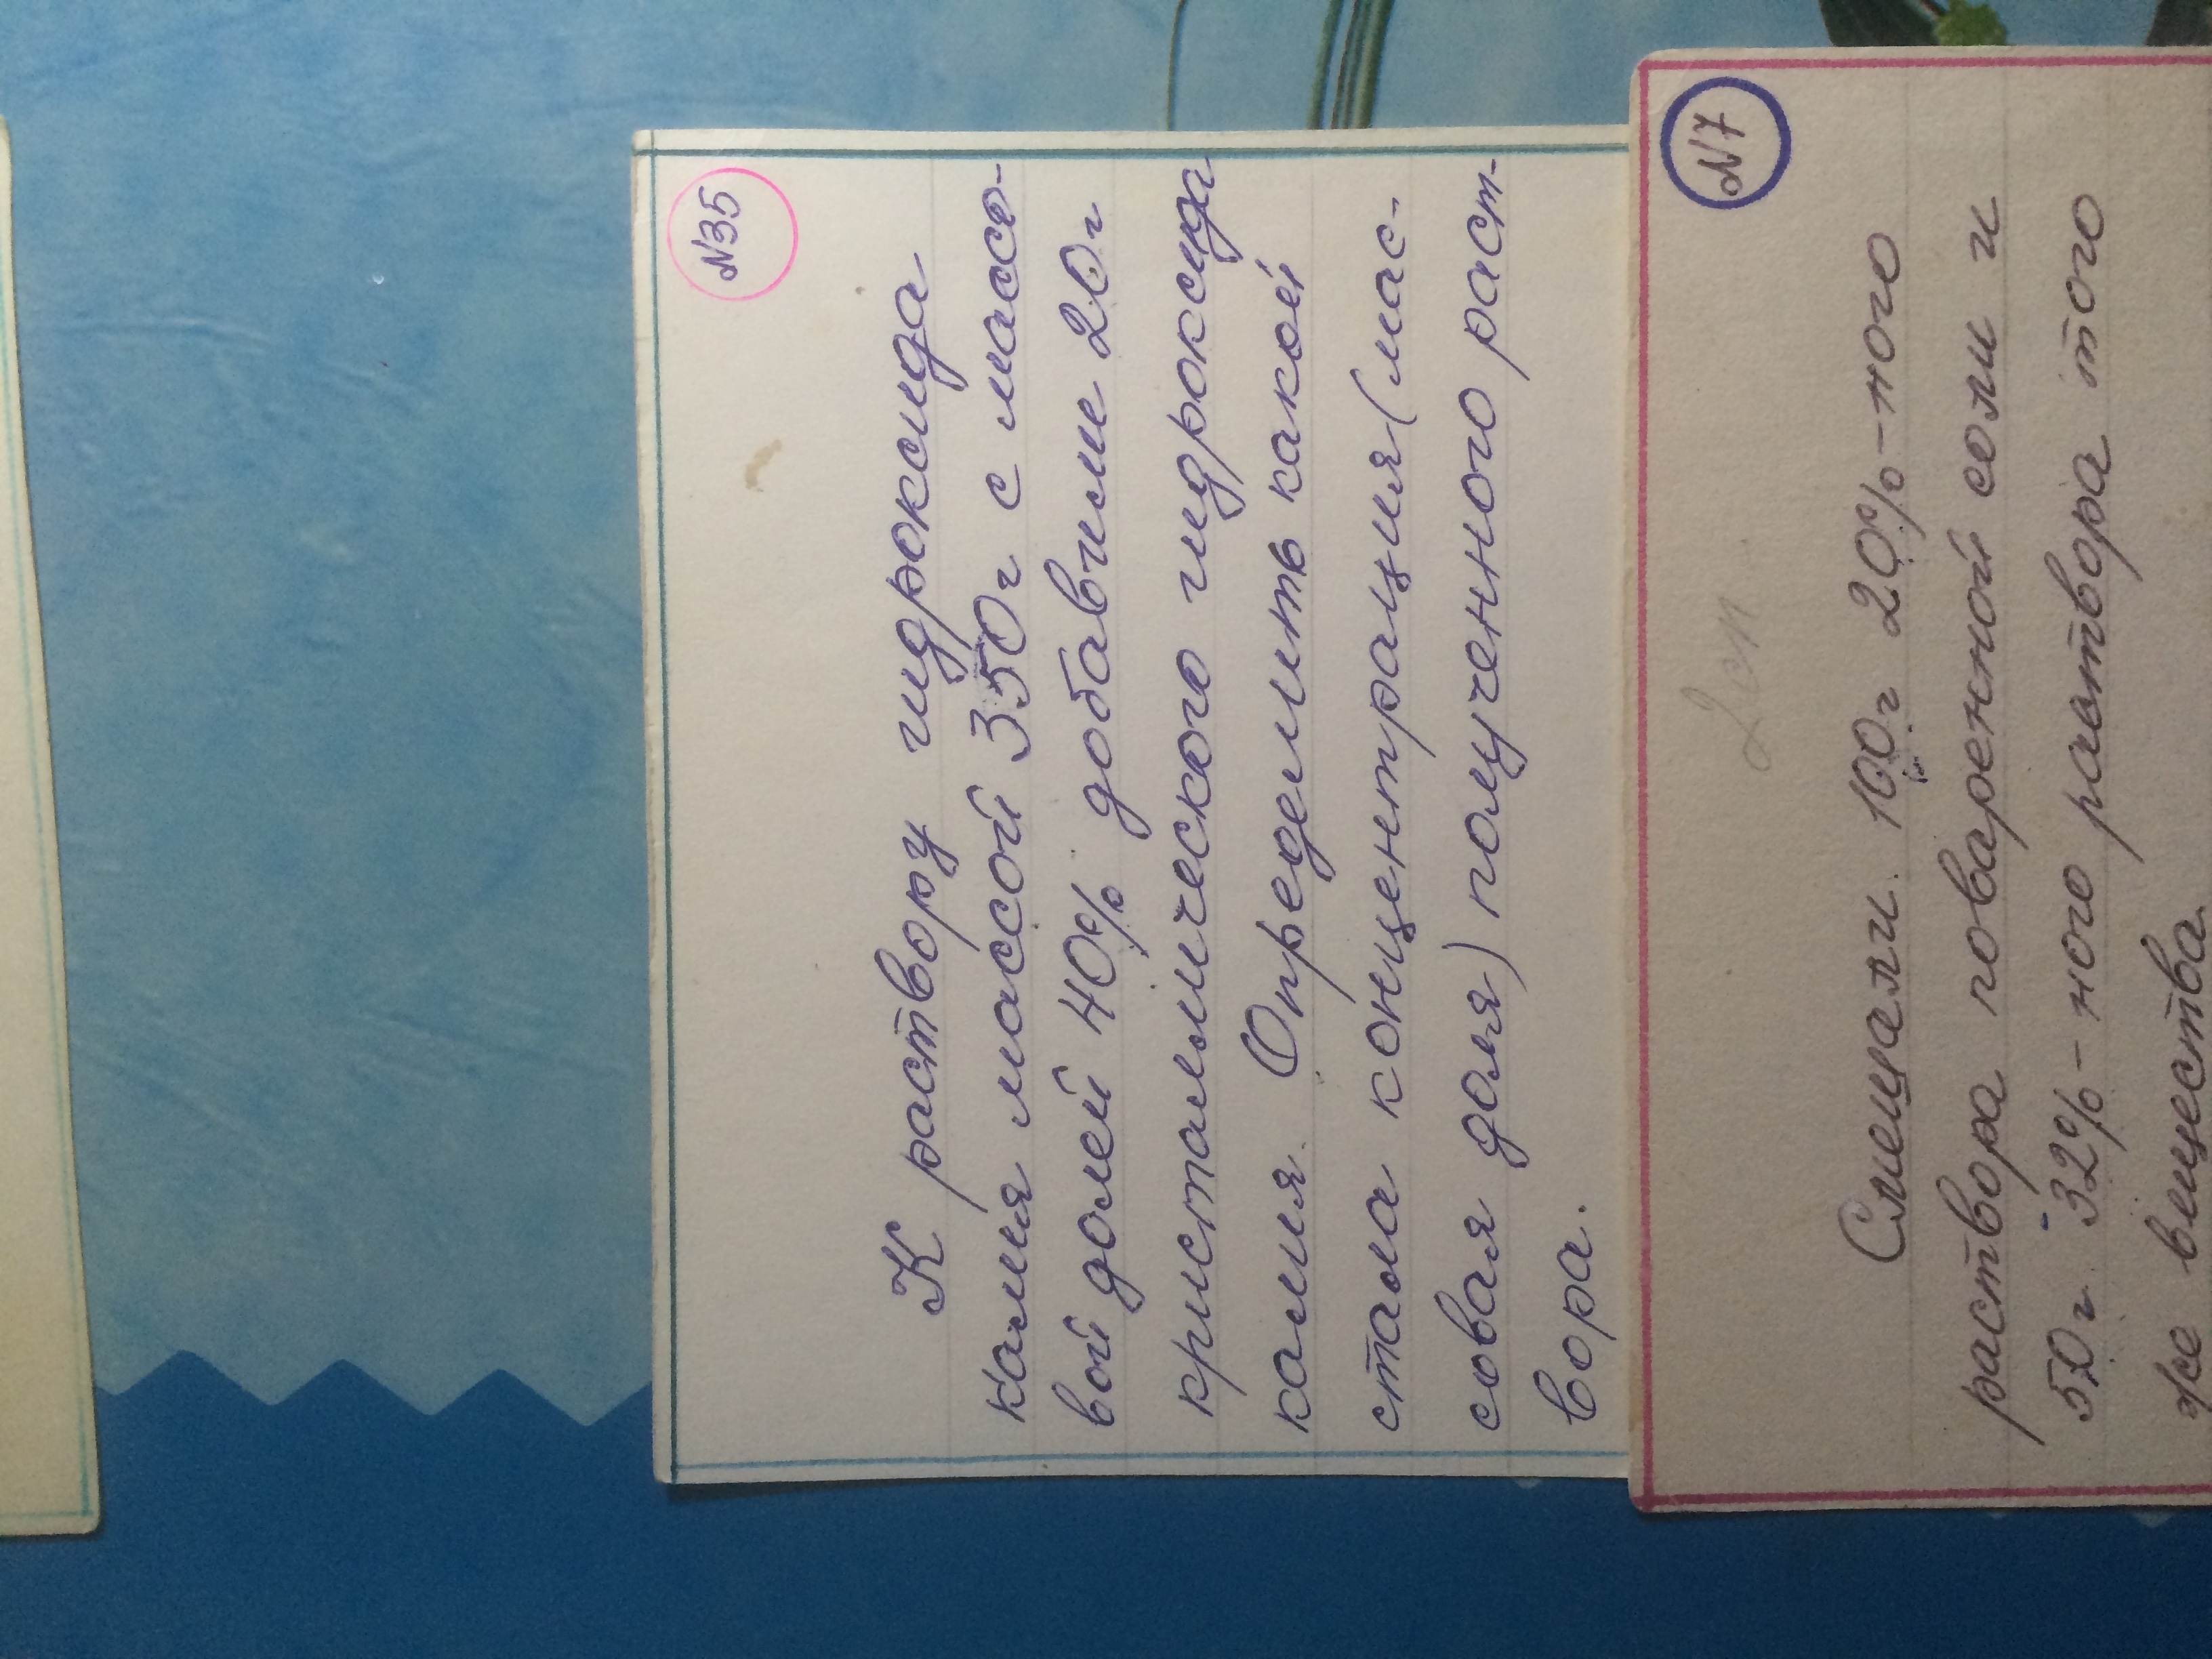 №35
К раствору гидроксида
калия массой 350г с массо-
вой долей 40% добавили 20г
кристаллического гидроксида
калия. Определить какой
стала концентрация (мас-
совая доля) полученного раст-
вора.
№7
2сп
Смешали 100г 20%-ного
раствора поваренной соли и
50г 32%-ного раствора того
же вещества.